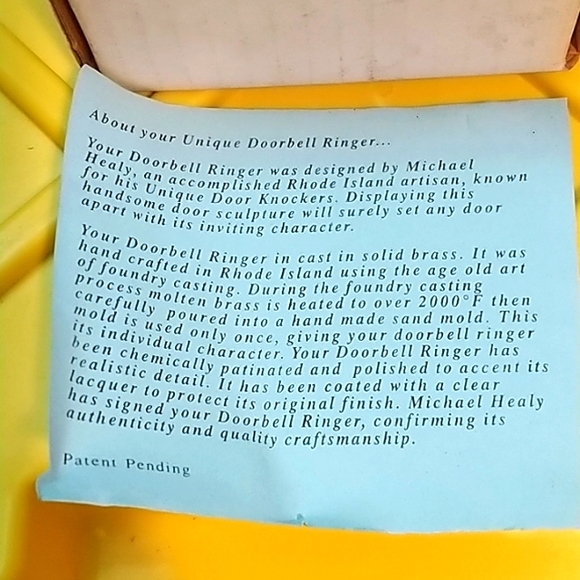 About your Unique Doorbell Ringer...
Your Doorbell Ringer was designed by Michael
Healy, an accomplished Rhode Island artisan, known
for his Unique Door Knockers. Displaying this
handsome door sculpture will surely set any door
apart with its inviting character.
Your Doorbell Ringer in cast in solid brass. It was
hand crafted in Rhode Island using the age old art
of foundry casting. During the foundry casting
process molten brass is heated to over 2000°F then
carefully poured into a hand made sand mold. This
mold is used only once, giving your doorbell ringer
its individual character. Your Doorbell Ringer has
been chemically patinated and polished to accent its
realistic detail. It has been coated with a clear
lacquer to protect its original finish. Michael Healy
has signed your Doorbell Ringer, confirming its
authenticity and quality craftsmanship.
Patent Pending